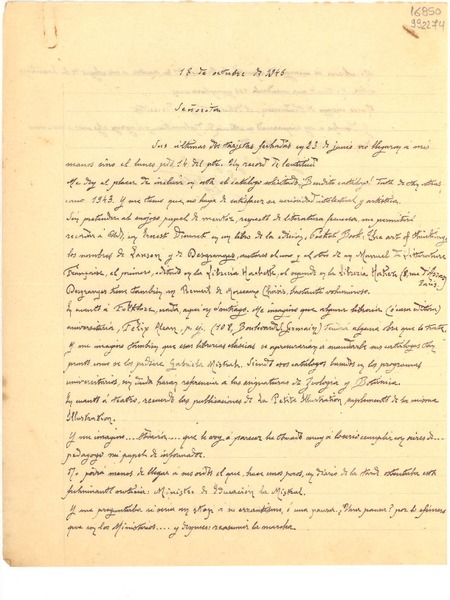 16850
992274
18 de octubre de 1946
Señorita
Sus últimas dos tarjetas fechadas en 23 de junio no llegaron a mis
manos sino el lunes pdo. 14 del pte. Un record de lentitud
Me doy el placer de incluir en esta el catálogo solicitado. ¡Bendito catálogo! Trata de
como 1943. Y me temo que no haya de satisfacer su curiosidad intelectual y artística.
Sin pretender al enojoso papel de mentor, respecto de literatura francesa, me permitirá
recordar a Ud., un Ernest Dimnet en un libro de la edición, Pocket Book, The art of thinking,
los nombres de Lanson y de Desgranges, autores el uno y el otro de un Manuel de Littérature
Française, el primero, editado en la Librería Hachette, el segundo en la Librería Hatier (8, rue d'Assas
París)
Desgranges tiene también un Recueil de Morceaux Choisis, bastante voluminoso.
En cuanto a Folklore, nada, aquí en Santiago. Me imagino que alguna librería
universitaria, Felix Alcan, p. ej. (108, Boulevard St Germain) tendrá alguna obra que lo trate
Y me imagino también que esas librerías clásicas se apresurarían a mandarle sus catálogos
pronto como se los pidiera Gabriela Mistral. Siendo esos catálogos basados en los programas
universitarios, sin duda harán referencia a las asignaturas de Zoología y Botánica.
En cuanto a teatro, recuerdo las publicaciones de La Petite Illustration, suplemento de la misma
Illustration.
Y me imagino.... que le voy a parecer haber tomado muy a lo serio cumplir con aires de....
pedagogo mi papel de informador.
No podrá menos de llegar a sus oídos el que, hace unos pocos, un diario de la tarde ostentaba esta
fulminante : Ministro de Educación la Mistral.
Y me preguntaba si sería un stop a su errantismo, o una pausa. ¿Una pausa? por lo efímeros
que son los Ministerios.... y después: reasumir la marcha